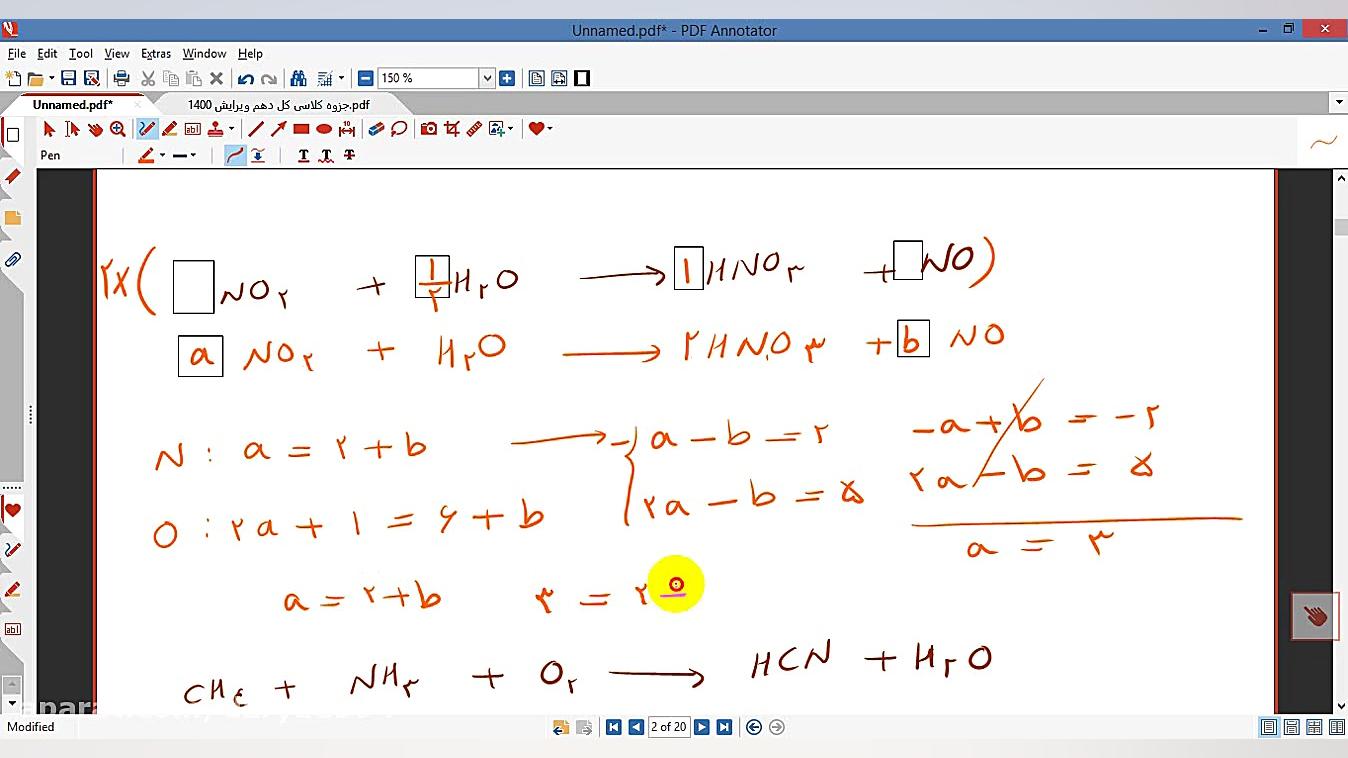 Unnamed.pdf* - PDF Annotator
File Edit Tool View Extras Window Help
150 %
Unnamed.pdf* جزوه کلاسی کل دهم ویرایش 1400.pdf
Pen
۲×( NO۲ + ۱/۲ H۲O ⟶ ۱ HNO۳ + NO )
a NO۲ + H۲O ⟶ ۲HNO۳ + b NO
N : a = ۲ + b ⟶ - a - b = ۲
-a + b = -۲
O : ۲a + ۱ = ۶ + b
۲a - b = ۵
۲a - b = ۵
a = ۳
a = ۲ + b ۳ = ۲
CH۴ + NH۳ + O۲ ⟶ HCN + H۲O
Modified 2 of 20